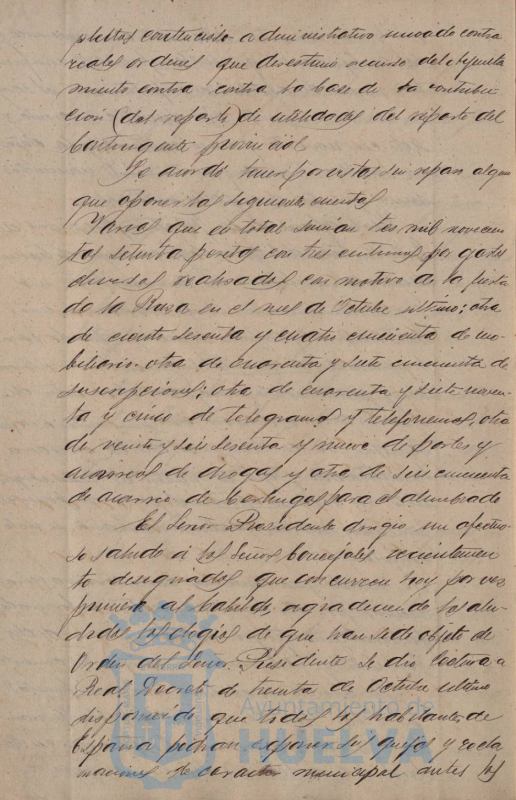 pleitos contencioso-administrativo incoado contra
reales ordenes que desestimó recurso del Ayunta
miento contra contra la base de la contribu
ción (del reparto) de utilidades del reparto del
Contingente provincial
Se acordó
que los siguientes cuentas
Varios que en total suman tres mil novecien
tos setenta pesetas con tres centimos por gastos
diversos realizados con motivo de la fiesta
de la Raza en el mes de Octubre ultimo; otra
de ciento sesenta y cuatro cincuenta de mo
biliario. otra de cuarenta y siete cincuenta de
suscripciones; otra de cuarenta y siete noven
ta y cinco de telegramas y telefonemas, otra
de veinte y seis sesenta y nueve de portes y
acarreos de drogas y otra de seis cincuenta
de acarreo de para el alumbrado
El Señor Presidente dirigio un afectuo
so saludo á los Señores Concejales recientemen
te designados que concurren hoy por vez
primera al Cabildo, agradeciendo los alu
didos los elogios de que han sido objeto de
Orden del Señor Presidente se dio lectura a
Real Decreto de treinta de Octubre ultimo
disponiendo que todos los habitantes de
España podran exponer sus quejas y recla
maciones de caracter municipal antes los
Ayuntamiento de
HUELVA